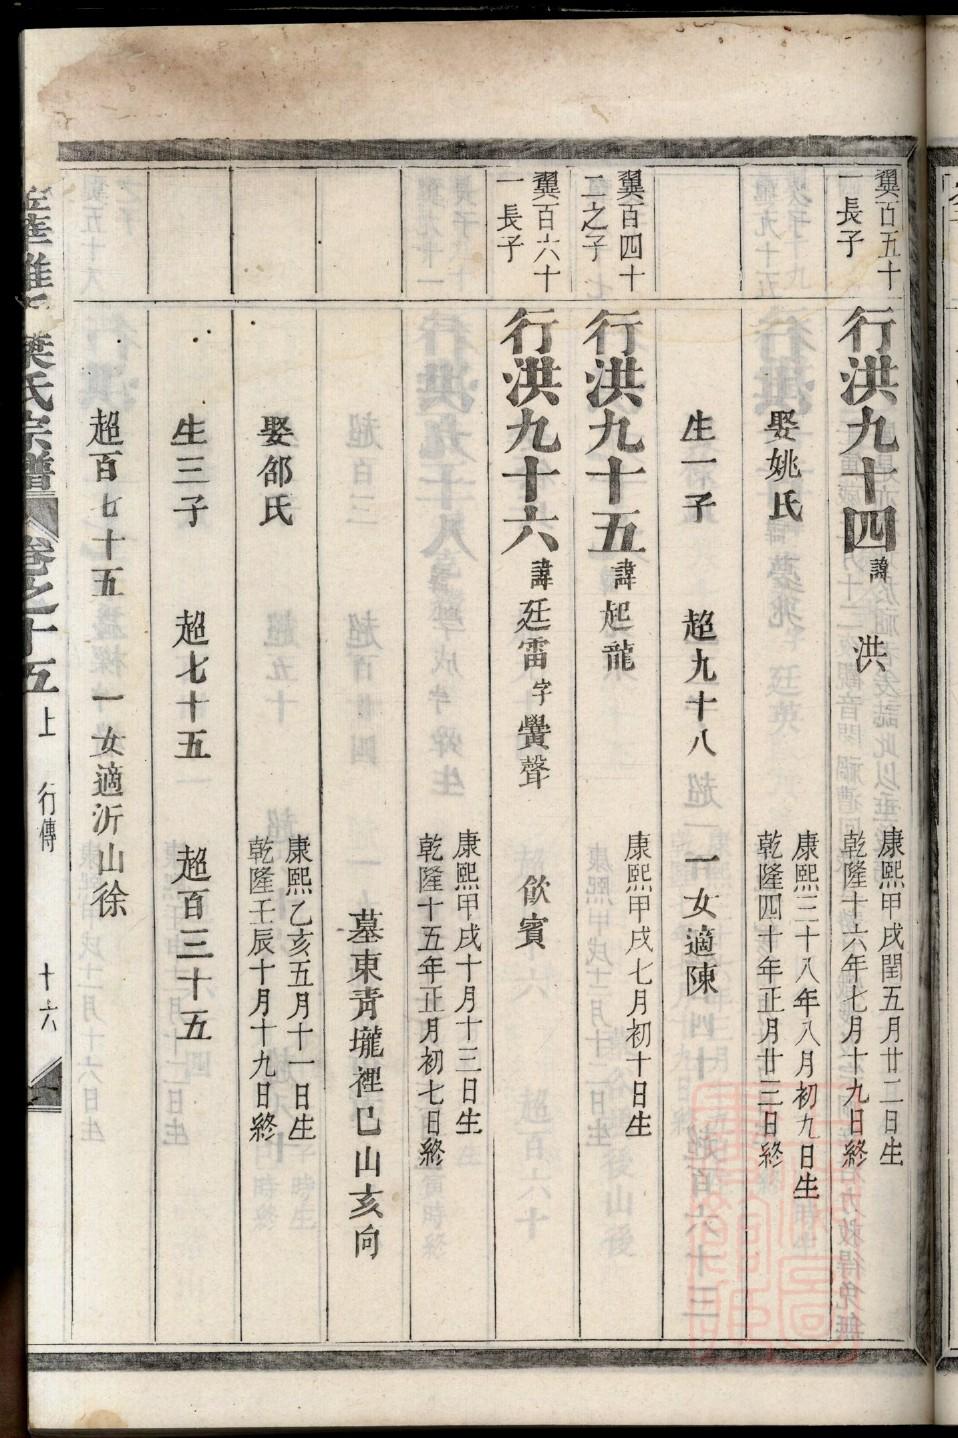 翼百五十
一長子
行洪九十四
諱 洪
康熙甲戌閏五月廿二日生
乾隆十六年七月十九日終
娶姚氏
康熙三十八年八月初九日生
乾隆四十年正月廿三日終
生一子 超九十八 一女適陳
翼百四十
二之子
行洪九十五
諱起龍
康熙甲戌七月初十日生
翼百六十
一長子
行洪九十六
諱廷雷字黌聲 飲賓
康熙甲戌十月十三日生
乾隆十五年正月初七日終
墓東青壠裡巳山亥向
娶邰氏
康熙乙亥五月十一日生
乾隆壬辰十月十九日終
生三子 超七十五 超百三十五
超百七十五 一女適沂山徐
葉氏宗譜 卷之十五上 行傳 十六